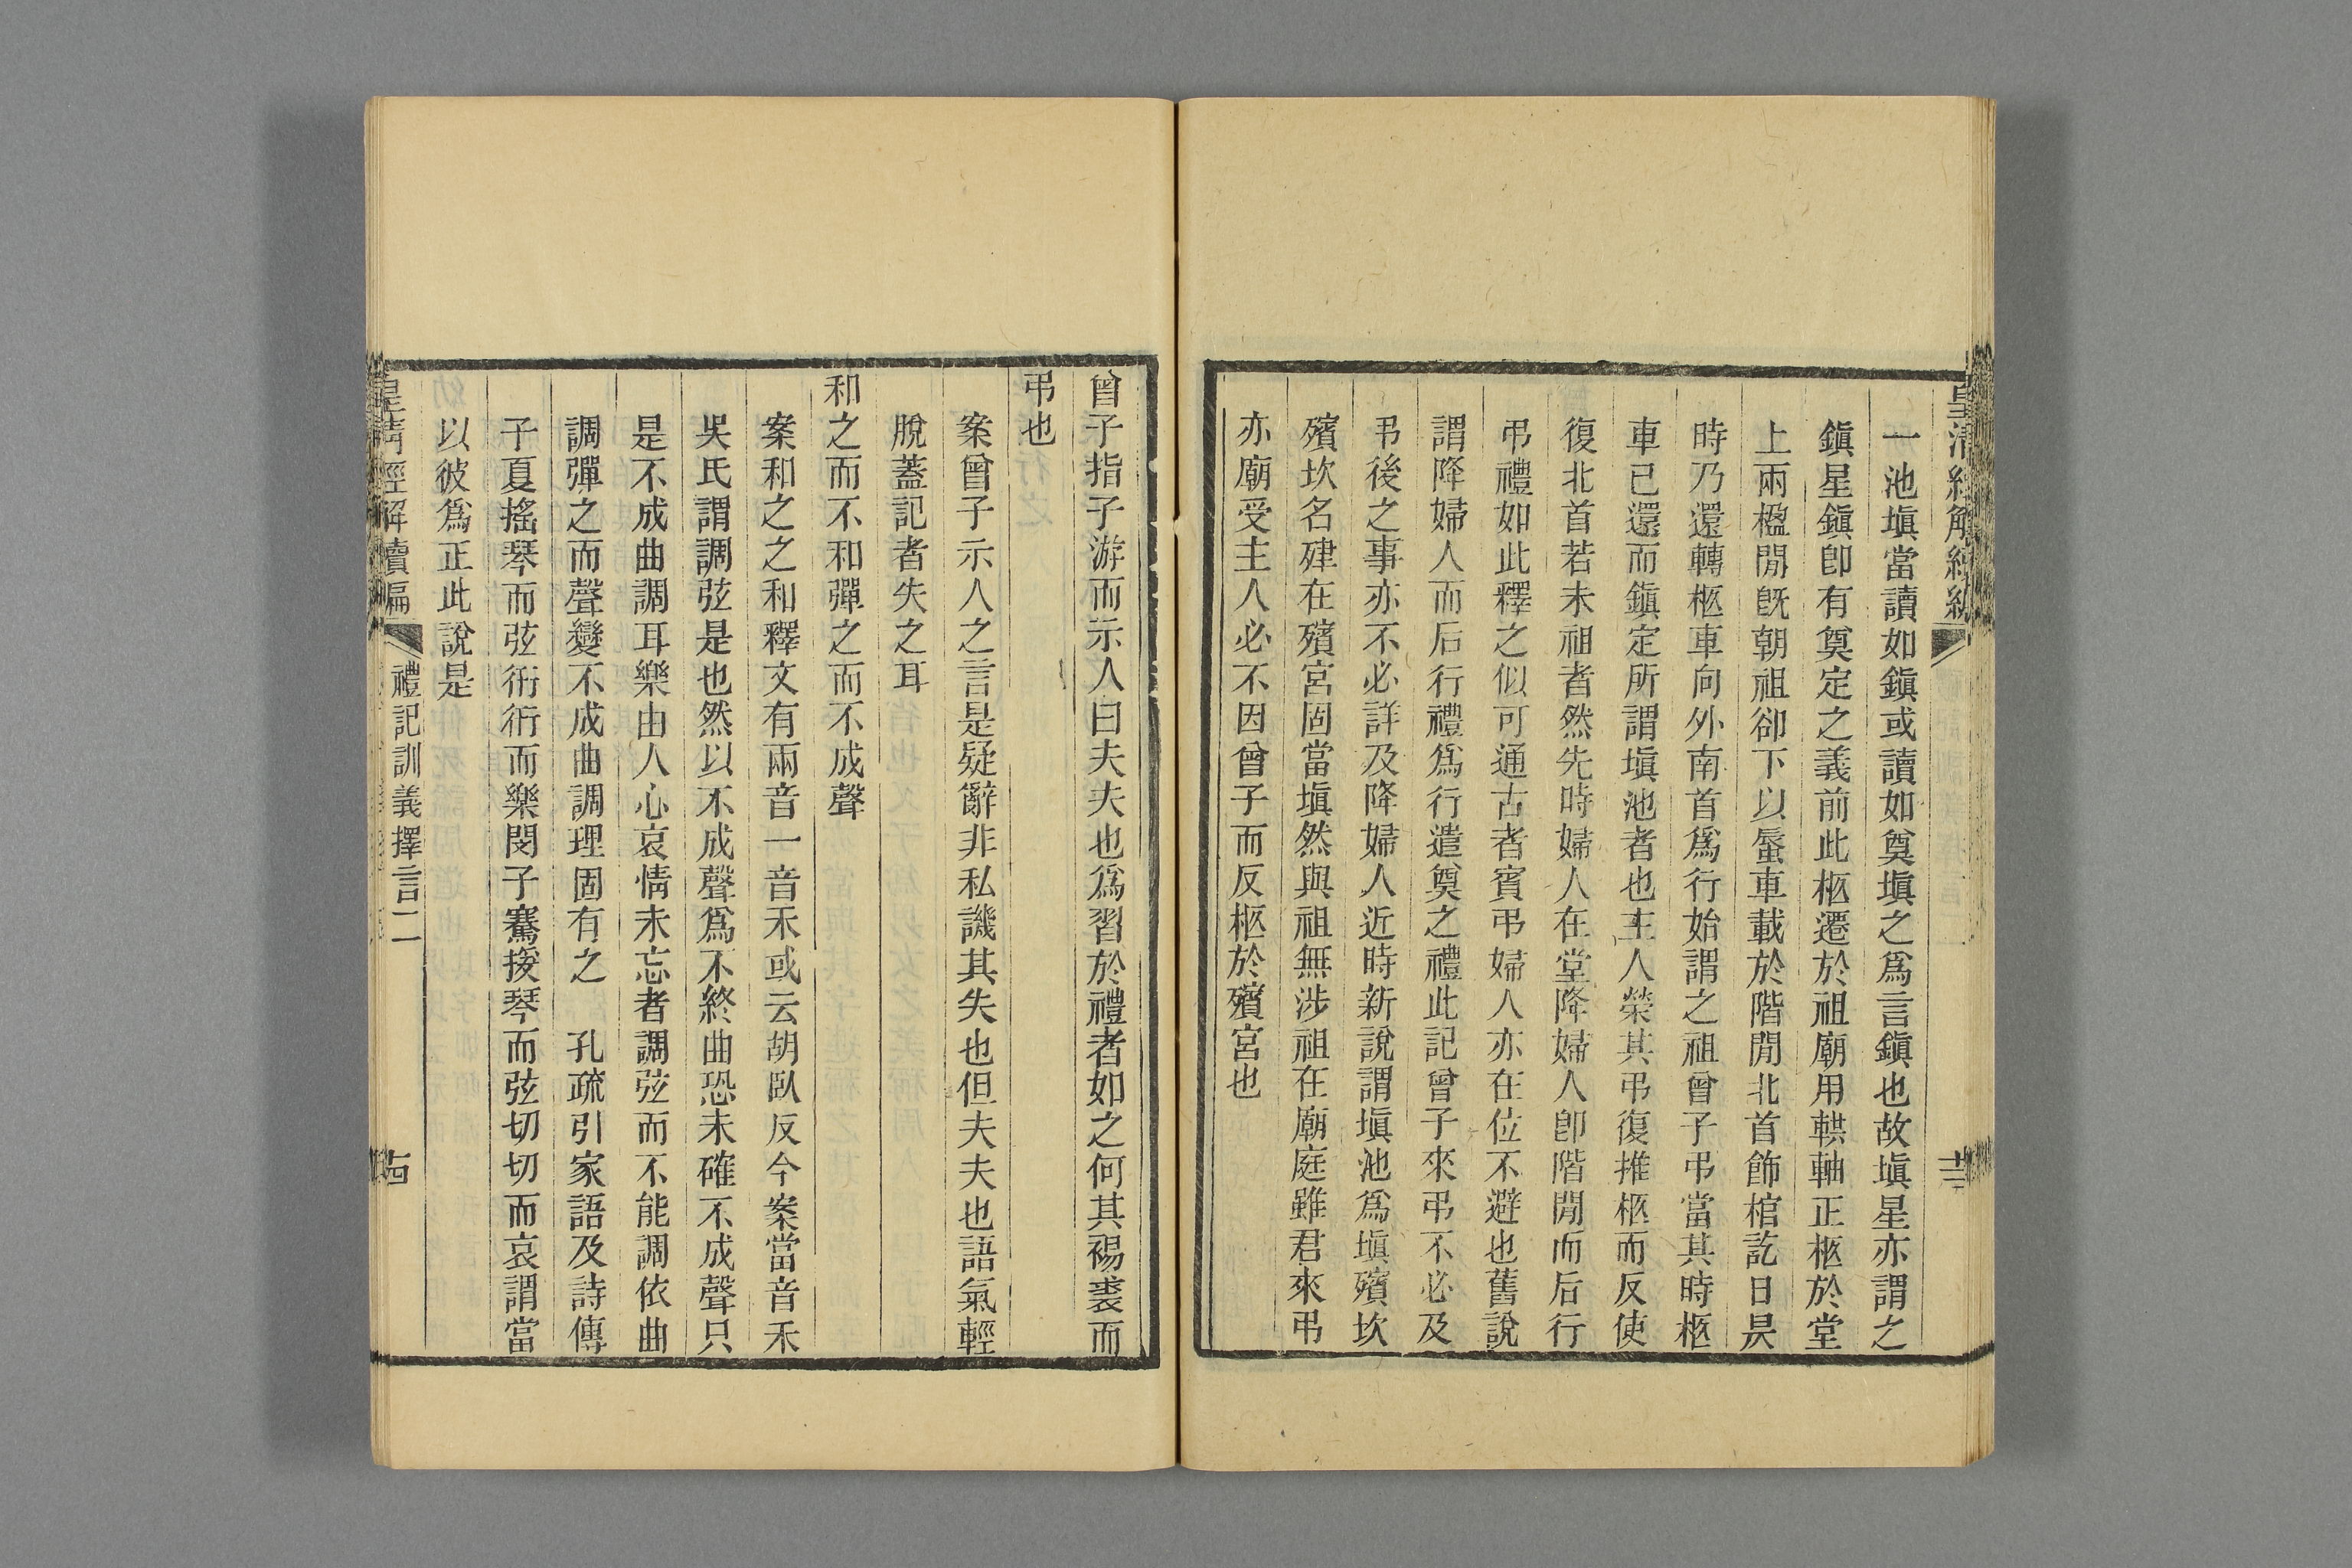 皇清經解續編
一池塡當讀如鎭或讀如奠塡之爲言鎭也故塡星亦謂之
鎭星鎭卽有奠定之義前此柩遷於祖廟用輁軸正柩於堂
上兩楹閒旣朝祖卻下以蜃車載於階閒北首飾棺訖日昃
時乃還轉柩車向外南首爲行始謂之祖曾子弔當其時柩
車已還而鎭定所謂塡池者也主人榮其弔復推柩而反使
復北首若未祖者然先時婦人在堂降婦人卽階閒而后行
弔禮如此釋之似可通古者賓弔婦人亦在位不避也舊說
謂降婦人而后行禮爲行遣奠之禮此記曾子來弔不必及
弔後之事亦不必詳及降婦人近時新說謂塡池爲塡殯坎
殯坎名肂在殯宮固當塡然與祖無涉祖在廟庭雖君來弔
亦廟受主人必不因曾子而反柩於殯宮也
曾子指子游而示人曰夫夫也爲習於禮者如之何其裼裘而
弔也
案曾子示人之言是疑辭非私譏其失也但夫夫也語氣輕
脫蓋記者失之耳
和之而不和彈之而不成聲
案和之之和釋文有兩音一音禾或云胡臥反今案當音禾
吳氏謂調弦是也然以不成聲爲不終曲恐未確不成聲只
是不成曲調耳樂由人心哀情未忘者調弦而不能調依曲
調彈之而聲變不成曲調理固有之　孔疏引家語及詩傳
子夏搖琴而弦衎衎而樂閔子騫援琴而弦切切而哀謂當
以彼爲正此說是
皇清經解續編
禮記訓義擇言二
十四